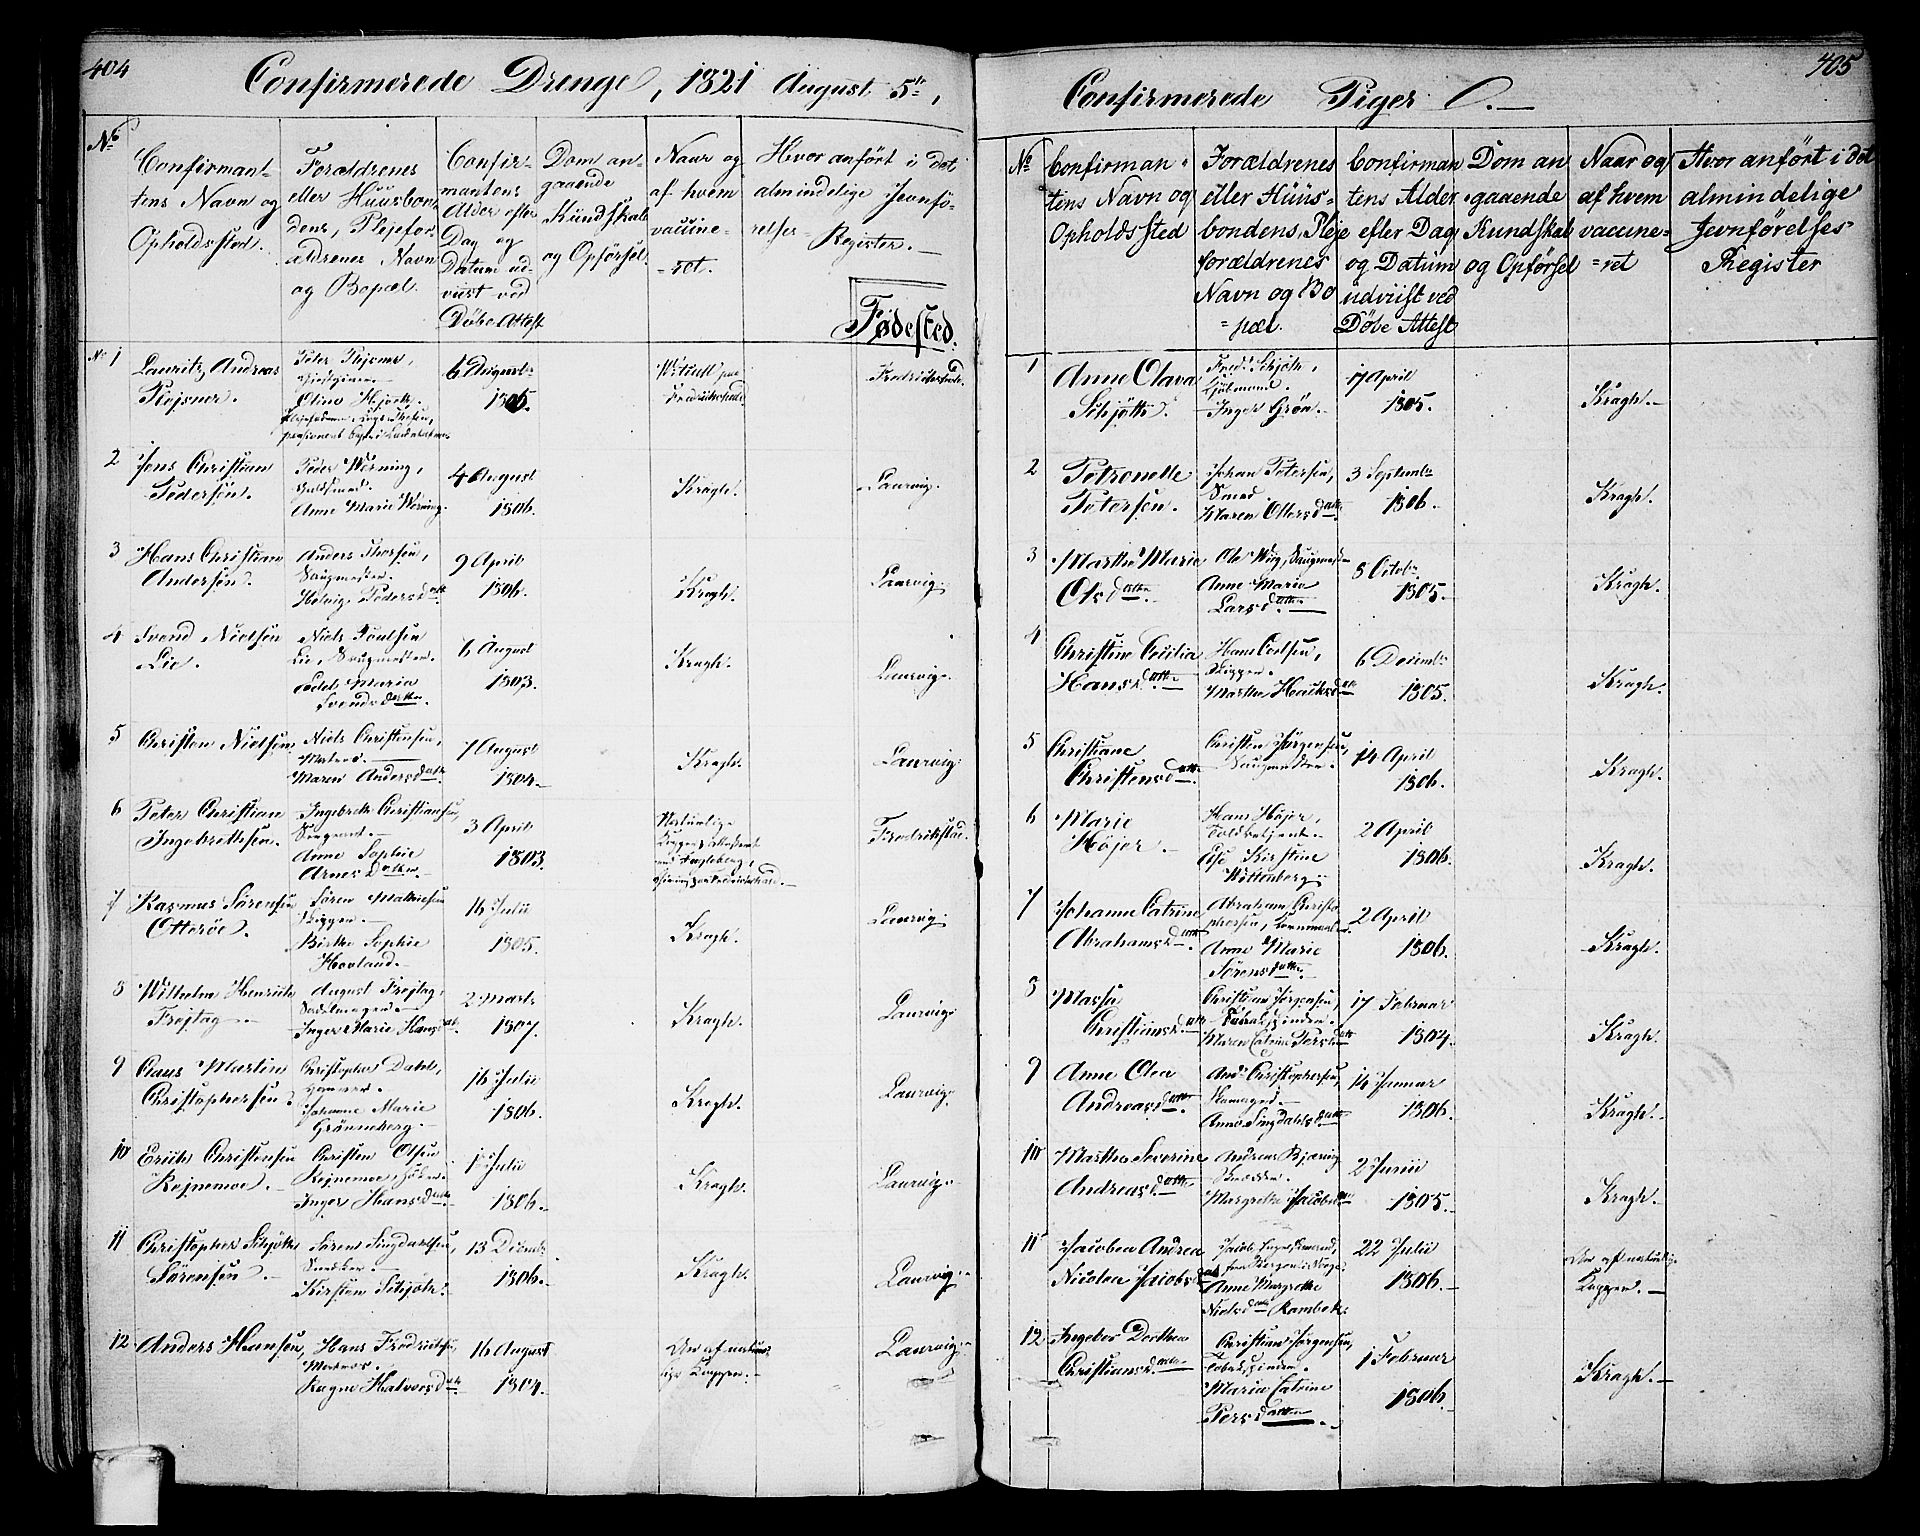 404
Confirmerede Drenge, 1821 August 5te,
No
Confirman-
tens Navn og
Opholdssted.
Forældrenes
eller Huusbon
dens, Plejefor
ældrenes Navn
og Bopæl.
Confir-
mantens
Alder efter
Dag og
Datum ud-
viist ved
Døbe Attest
Dom an-
gaaende
Kundskab
og Opførsel.
Naar og
af hvem
vaccine-
ret.
Hvor anført i det
almindelige Jevnfø-
relses-
Register.
Fødested.
No 1
Lauritz Andreas
Plejsner.
Peter Plejsner,
6 August
1805.
Attest fra
Fredrikshald
2
Jens Christian
Pedersen.
Peder Werning,
Guldsmed.
Anne Marie Werning.
4 August
1806.
Kragh.
Laurvig.
3
Hans Christian
Andersen.
Anders Thorsen,
Saugmester.
Helvig Pedersdatter
9 April
1806.
Kragh.
Laurvig.
4
Svend Nielsen
Lie.
Niels Poulsen
Lie, Saugmester.
Edel Maria
Svendsdatter.
6 August
1803.
Kragh.
Laurvig.
5
Christen Nielsen
Niels Christensen,
Matros.
Maren Andersdatter
7 August
1804.
Kragh.
Laurvig.
6
Peter Christian
Ingebrethsen.
Ingebreth Christiansen,
Sergeant.
Anne Sophie
Arnesdatter.
3 April
1803.
Naturlige
Fredrikstad.
7
Rasmus Sørensen
Otterøe.
Søren Mathisen
Skipper.
Birthe Sophie
Hovland.
16 Julii
1805.
Kragh.
Laurvig.
8
Wilhelm Henrich
Frejtag
August Frejtag,
Sadelmager.
Inger Marie Hansdatter
2 Marts
1807.
Kragh.
Laurvig.
9
Claus Martin
Christophersen.
Christopher Dabel,
Johanne Marie
Grønneberg.
16 Julii
1806.
Kragh.
Laurvig.
10
Erich Christensen
Rejnemoe.
Christen Olsen
Inger Hansd
1 Julii
1806.
Kragh.
Laurvig.
11
Christopher Schjøth
Sørensen.
Søren Lingdahlsen,
Snedker.
Kirsten Schjøth.
13 Decembr
1806.
Kragh.
Laurvig.
12
Anders Hansen,
Hans Fredrichsen,
Matros.
Ragne Halvorsd
16 August
1804.
Har af natur-
lige Kopper.
Laurvig.
405
Confirmerede Piger
No
Confirman-
tens Navn og
Opholdssted
Forældrenes
eller Huus-
bondens, Pleje
forældrenes
Navn og Bo
pæl.
Confirman
tens Alder
efter Dag
og Datum
udviist ved
Døbe Attest
Dom an
gaaende
Kundskab
og Opførsel
Naar og
af hvem
vaccine-
ret
Hvor anført i det
almindelige
Jevnførelses-
Register
1
Anne Olava
Schjøth.
Fred. Schjøth
Kjøbmand.
Inger Grøn.
17 April
1805.
Kragh.
2
Petronelle
Petersen.
Johan Petersen,
Smed
Maren Ottersdatter
3 Septembr
1806.
Kragh.
3
Marthe Marie
Olsdatter.
Anne Maria
Larsdatter.
8 Octobr
1805.
Kragh.
4
Christine Cecilia
Hansdatter.
Skipper.
6 Decembr
1805.
Kragh.
5
Christiane
Christensdatter
Christen Jørgensen,
Saugmester.
14 April
1806.
Kragh.
6
Marie
Højer.
Hans Højer,
Toldbetjent.
Else Kirstine
Wittenberg.
2 April
1806.
Kragh.
7
Johanne Catrine
Abrahamsdatter
Abraham Christo
phersen,
Anne Marie
Sørensdatter.
2 April
1806.
Kragh.
8
Massa
Christiansdatter
Christian Jørgensen,
Tobakspinder.
Maren Catrine Persdatter
17 Februar
1804.
Kragh.
9
Anne Olea
Andreasdatter.
And. Christophersen,
14 Januar
1806.
Kragh.
10
Marthe Severine
Andreasdatter.
Andreas
Snedker.
Margrethe Jacobsdatter
2 Junii
1805.
Kragh.
11
Jacobea Andrea
Nicolea Jacobsd
Anne Margrethe
Nielsdatter Rambek.
22 Julii
1806.
Har af naturlige
Kopper.
12
Ingebor Dorthea
Christiansdatter.
Christian Jørgensen,
Tobakspinder.
Maria Catrine
Persdatter.
1 Februar
1806.
Kragh.